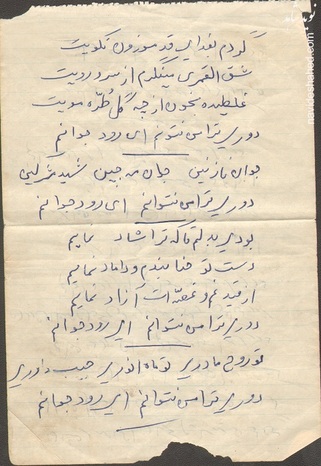 گردم بفدای قد موزون نکویت
شق القمری مینگرم از سر و رویت
غلطیده بخون از چه گل طره مویت
دوری ترا من نتوانم ای رود جوانم
جوان نازنین جان مه جبین شیدند
دوری ترا من نتوانم ای رود جوانم
بودی بدلم آنکه ترا شاد نمایم
دست تو حنا بندم و داماد نمایم
از قید غم و غصه ات آزاد نمایم
دوری ترا من نتوانم ای رود جوانم
تو روح مادری تو ماه انوری حبیب داوری
دوری ترا من نتوانم ای رود جوانم